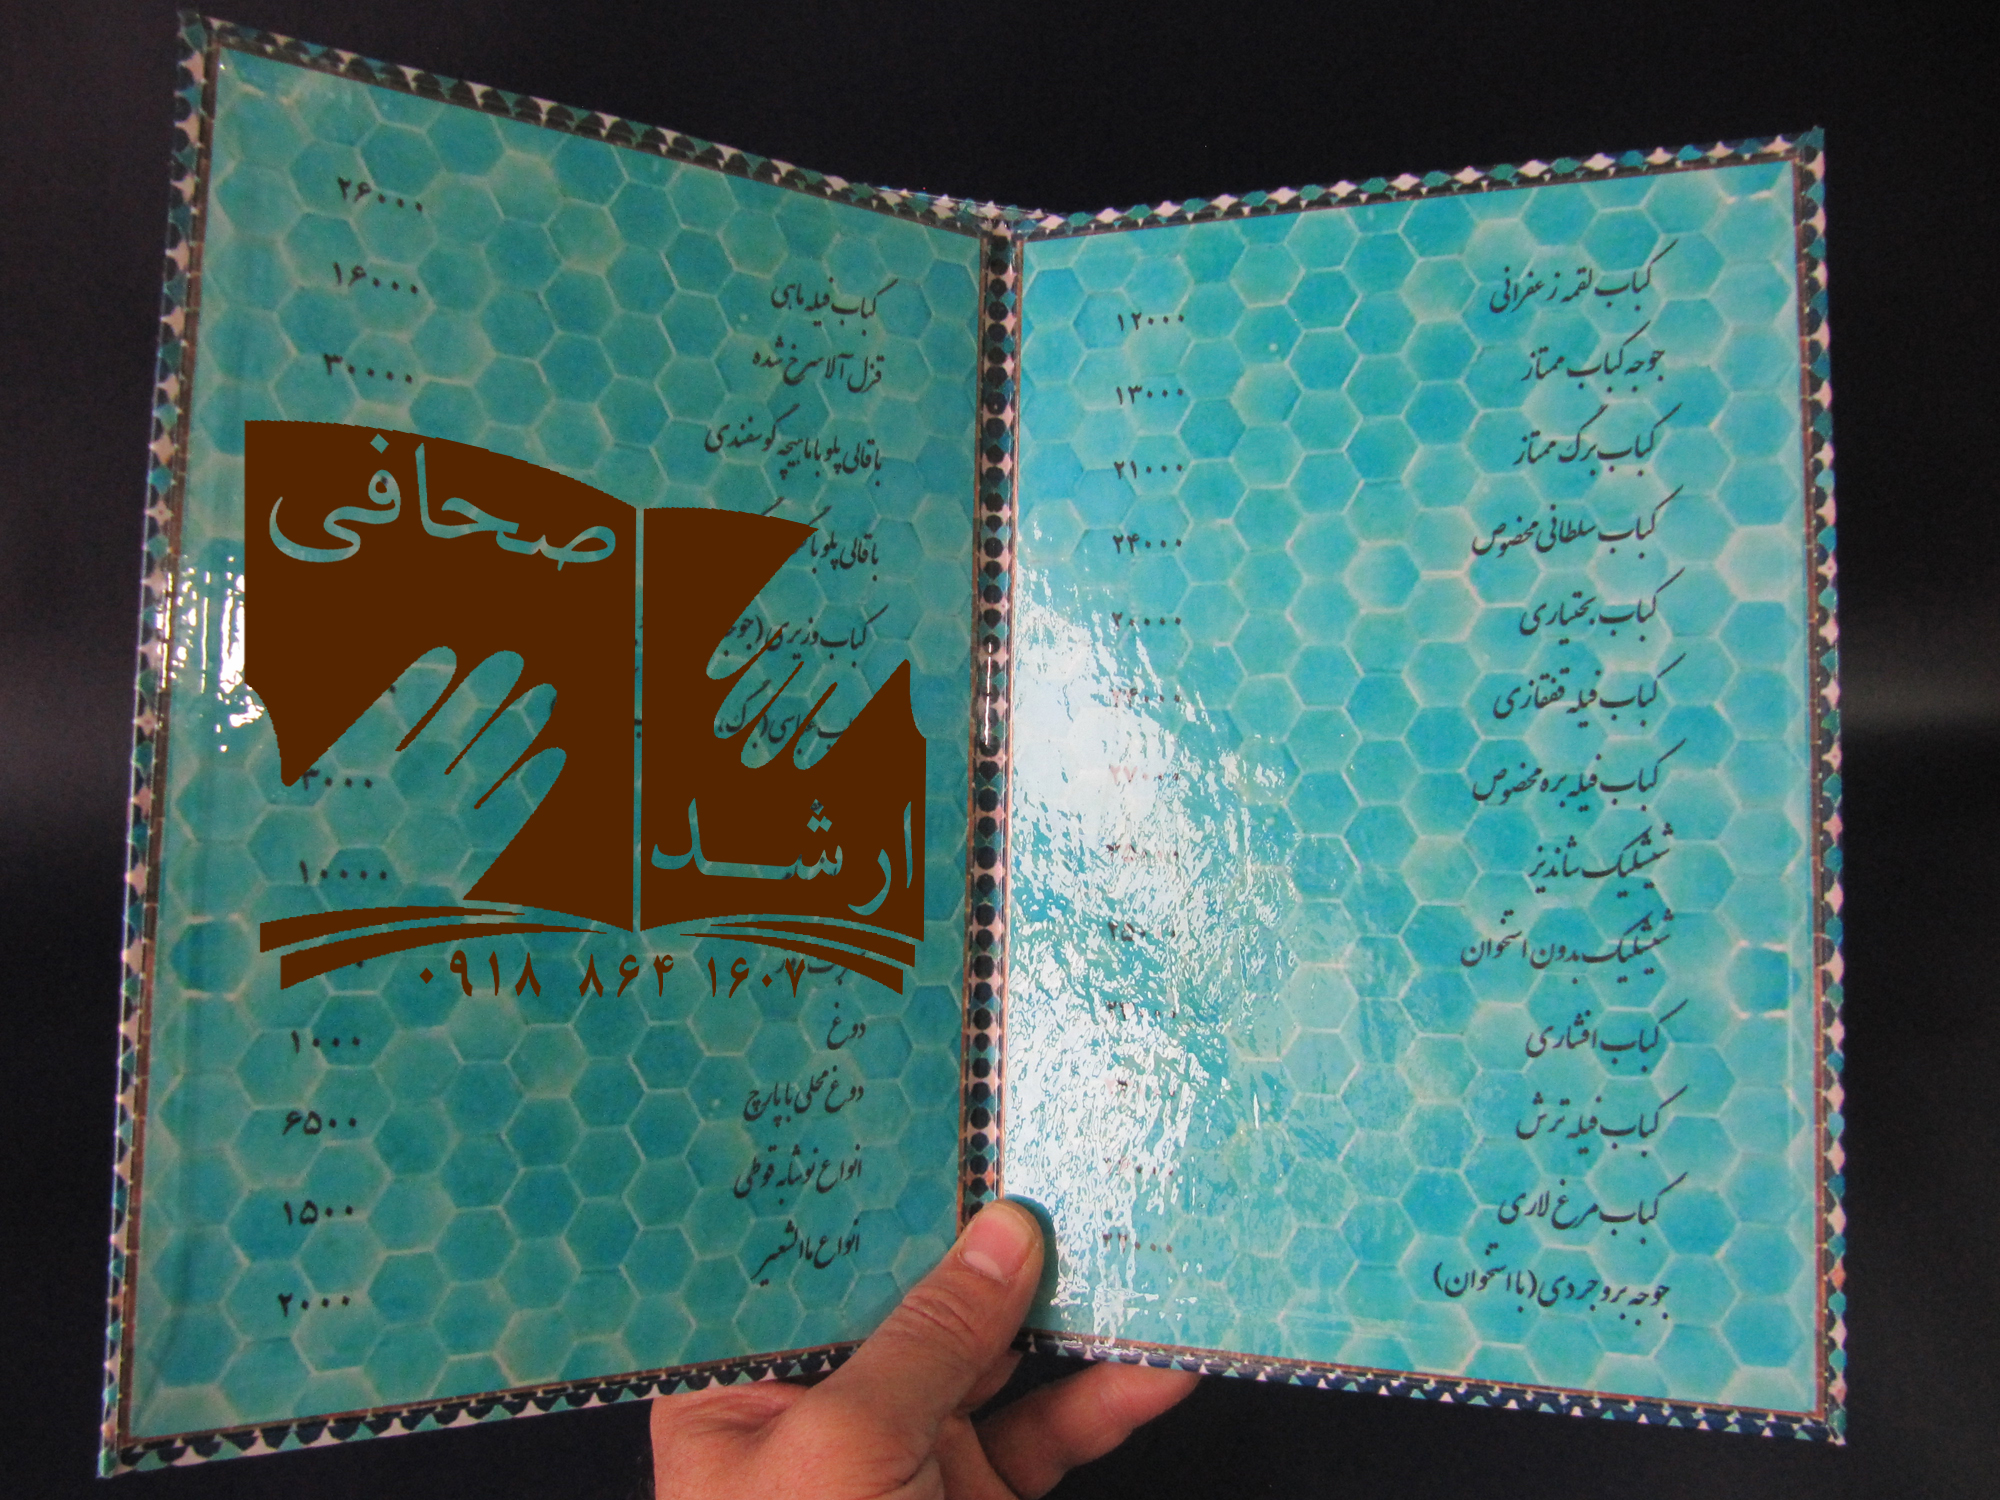 کباب لقمه زعفرانی ۱۲۰۰۰
جوجه کباب ممتاز ۱۳۰۰۰
کباب برگ ممتاز ۲۱۰۰۰
کباب سلطانی مخصوص ۲۴۰۰۰
کباب بختیاری ۲۰۰۰۰
کباب فیله قفقازی
کباب فیله بره مخصوص ۲۷۰۰۰
شیشلیک شاندیز
شیشلیک بدون استخوان ۲۵۰۰۰
کباب افشاری
کباب فیله ترش
کباب مرغ لاری
جوجه بروجردی (با استخوان)
۲۶۰۰۰
کباب فیله ماهی ۱۶۰۰۰
قزل آلا سرخ شده ۳۰۰۰۰
باقالی پلو با ماهیچه گوسفندی
باقالی پلو با
کباب وزیری (
عباسی (برگ،
۳۰۰۰
۱۰۰۰۰
دوغ ۱۰۰۰
دوغ محلی با پارچ ۶۵۰۰
انواع نوشابه قوطی ۱۵۰۰
انواع ماالشعیر ۲۰۰۰
صحافی
ارشد
۰۹۱۸ ۸۶۴ ۱۶۰۷